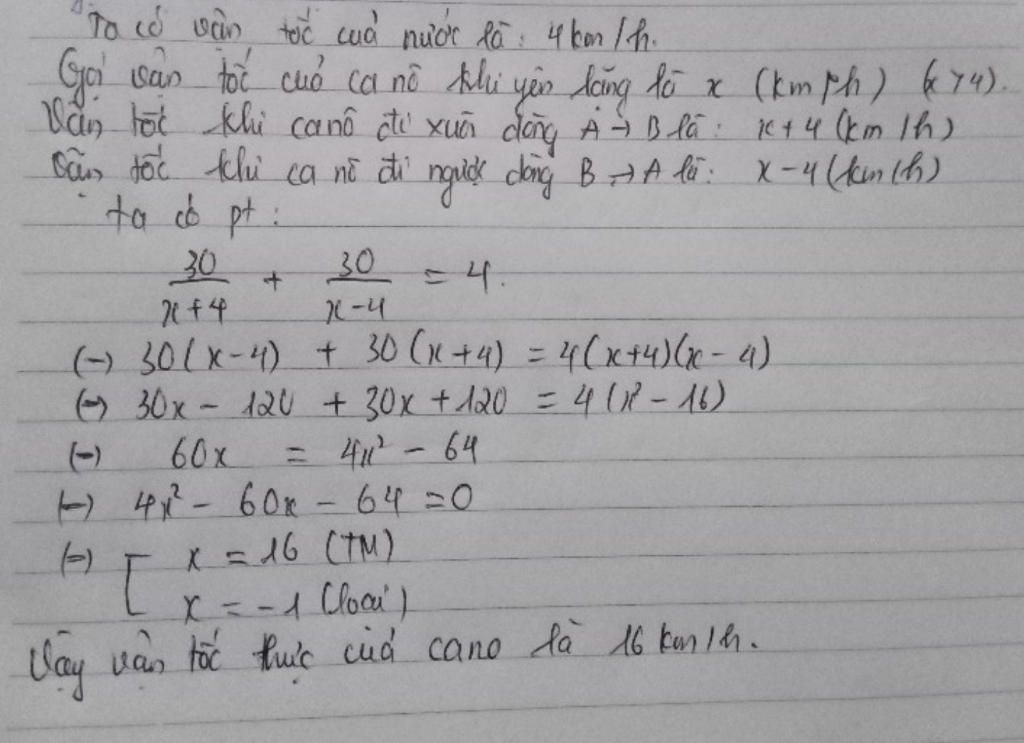 Ta có vận tốc của nước là: 4km/h.
Gọi vận tốc của ca nô khi yên lặng là x (km/h) (x > 4).
Vận tốc khi canô đi xuôi dòng A → B là: x + 4 (km/h)
Vận tốc khi ca nô đi ngược dòng B → A là: x - 4 (km/h)
ta có pt:
30/(x+4) + 30/(x-4) = 4.
(=) 30(x-4) + 30(x+4) = 4(x+4)(x-4)
(=) 30x - 120 + 30x + 120 = 4(x² - 16)
(=) 60x = 4x² - 64
(=) 4x² - 60x - 64 = 0
(=) [ x = 16 (TM)
x = -1 (loại)
Vậy vận tốc thực của cano là 16 km/h.